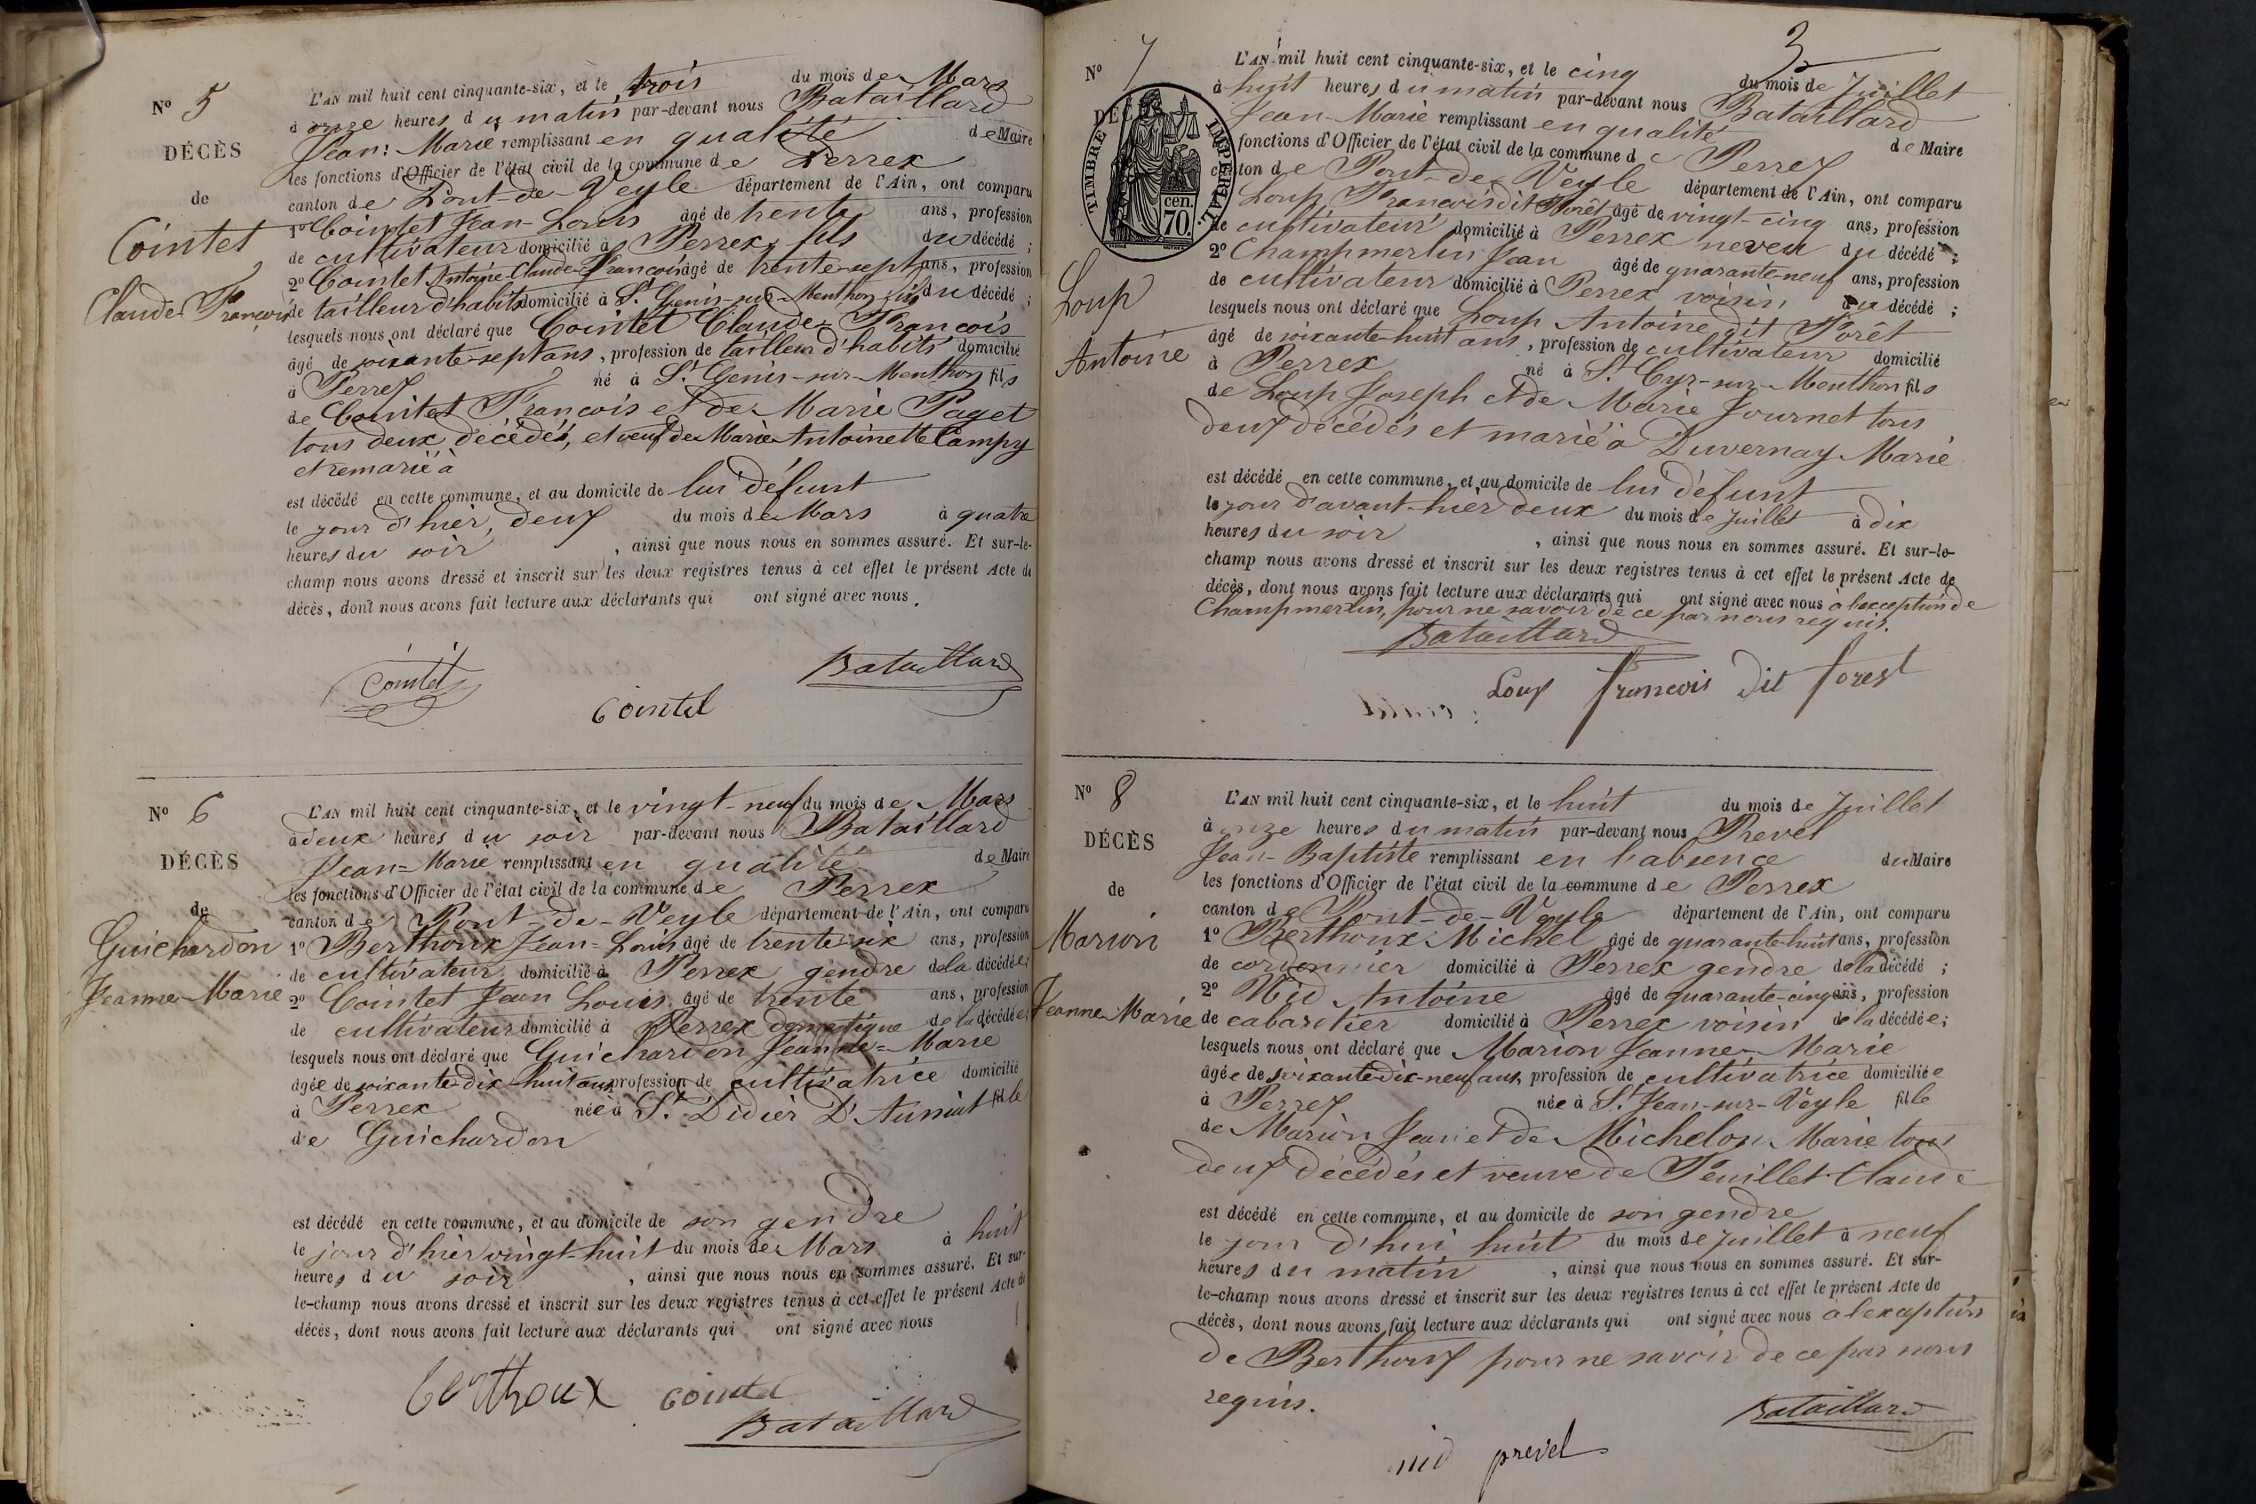 N° 5
DÉCÈS
de
Cointet
Claude François
L'AN mil huit cent cinquante-six, et le trois du mois de Mars
à onze heures du matin par-devant nous Bataillard
Jean-Marie remplissant en qualité de Maire
les fonctions d'Officier de l'état civil de la commune de Perrex
canton de Pont-de-Veyle département de l'Ain, ont comparu
1° Cointet Jean-Louis âgé de trente ans, profession
de cultivateur domicilié à Perrex, fils du décédé ;
2° Cointet Antoine Claude-François âgé de trente-sept ans, profession
de tailleur d'habits domicilié à St Genis-sur-Menthon fils du décédé ;
lesquels nous ont déclaré que Cointet Claude-François
âgé de soixante-sept ans, profession de tailleur d'habits domicilié
à Perrex né à St Genis-sur-Menthon fils
de Cointet François et de Marie Paget
tous deux décédés, et veuf de Marie Antoinette Campy
et remarié à
est décédé en cette commune, et au domicile de lui défunt
le jour d'hier, deux du mois de Mars à quatre
heures du soir , ainsi que nous nous en sommes assuré. Et sur-le-
champ nous avons dressé et inscrit sur les deux registres tenus à cet effet le présent Acte de
décès, dont nous avons fait lecture aux déclarants qui ont signé avec nous.
Cointet
Cointet
Bataillard
N° 6
DÉCÈS
de
Guichardon
Jeanne-Marie
L'AN mil huit cent cinquante-six, et le vingt-neuf du mois de Mars
à deux heures du soir par-devant nous Bataillard
Jean-Marie remplissant en qualité de Maire
les fonctions d'Officier de l'état civil de la commune de Perrex
canton de Pont-de-Veyle département de l'Ain, ont comparu
1° Berthoux Jean-Louis âgé de trente-six ans, profession
de cultivateur domicilié à Perrex gendre de la décédée ;
2° Cointet Jean Louis âgé de trente ans, profession
de cultivateur domicilié à Perrex domestique de la décédée
lesquels nous ont déclaré que Guichardon Jeanne-Marie
âgée de soixante-dix-huit ans profession de cultivatrice domicilié
à Perrex née à St Didier D'Aussiat fille
de Guichardon
est décédé en cette commune, et au domicile de son gendre
le jour d'hier vingt-huit du mois de Mars à huit
heures du soir , ainsi que nous nous en sommes assuré. Et sur-
le-champ nous avons dressé et inscrit sur les deux registres tenus à cet effet le présent Acte de
décès, dont nous avons fait lecture aux déclarants qui ont signé avec nous
berthoux cointet
Bataillard
3
N° 7
DÉCÈS
TIMBRE IMPÉRIAL.
cen.
70.
Loup
Antoine
L'AN mil huit cent cinquante-six, et le cinq du mois de Juillet
à huit heures du matin par-devant nous Bataillard
Jean-Marie remplissant en qualité de Maire
fonctions d'Officier de l'état civil de la commune de Perrex
canton de Pont-de-Veyle département de l'Ain, ont comparu
Loup François dit Forêt âgé de vingt-cinq ans, profession
de cultivateur domicilié à Perrex neveu du décédé ;
2° Champmerlin Jean âgé de quarante-neuf ans, profession
de cultivateur domicilié à Perrex voisin du décédé ;
lesquels nous ont déclaré que Loup Antoine dit Forêt
âgé de soixante-huit ans, profession de cultivateur domicilié
à Perrex né à St Cyr-sur-Menthon fils
de Loup Joseph et de Marie Journet tous
deux décédés et marié à Duvernay Marie
est décédé en cette commune, et au domicile de lui défunt
le jour d'avant-hier deux du mois de Juillet à dix
heures du soir , ainsi que nous nous en sommes assuré. Et sur-le-
champ nous avons dressé et inscrit sur les deux registres tenus à cet effet le présent Acte de
décès, dont nous avons fait lecture aux déclarants qui ont signé avec nous à l'exception de
Champmerlin, pour ne savoir de ce par nous requis.
Bataillard
Loup francois dit forest
N° 8
DÉCÈS
de
Marion
Jeanne-Marie
L'AN mil huit cent cinquante-six, et le huit du mois de Juillet
à onze heures du matin par-devant nous Prevel
Jean-Baptiste remplissant en l'absence du Maire
les fonctions d'Officier de l'état civil de la commune de Perrex
canton de Pont-de-Veyle département de l'Ain, ont comparu
1° Berthoux Michel âgé de quarante-huit ans, profession
de cordonnier domicilié à Perrex gendre de la décédé ;
2° Nid Antoine âgé de quarante-cinq ans, profession
de cabaretier domicilié à Perrex voisin de la décédée ;
lesquels nous ont déclaré que Marion Jeanne-Marie
âgée de soixante-dix-neuf ans, profession de cultivatrice domiciliée
à Perrex née à St Jean-sur-Veyle fille
de Marion Jean et de Michelon Marie tous
deux décédés et veuve de Feuillet Claude
est décédé en cette commune, et au domicile de son gendre
le jour d'hui huit du mois de Juillet à neuf
heures du matin , ainsi que nous nous en sommes assuré. Et sur-
le-champ nous avons dressé et inscrit sur les deux registres tenus à cet effet le présent Acte de
décès, dont nous avons fait lecture aux déclarants qui ont signé avec nous à l'exception
de Berthoux pour ne savoir de ce par nous
requis.
Bataillard
nid prevel